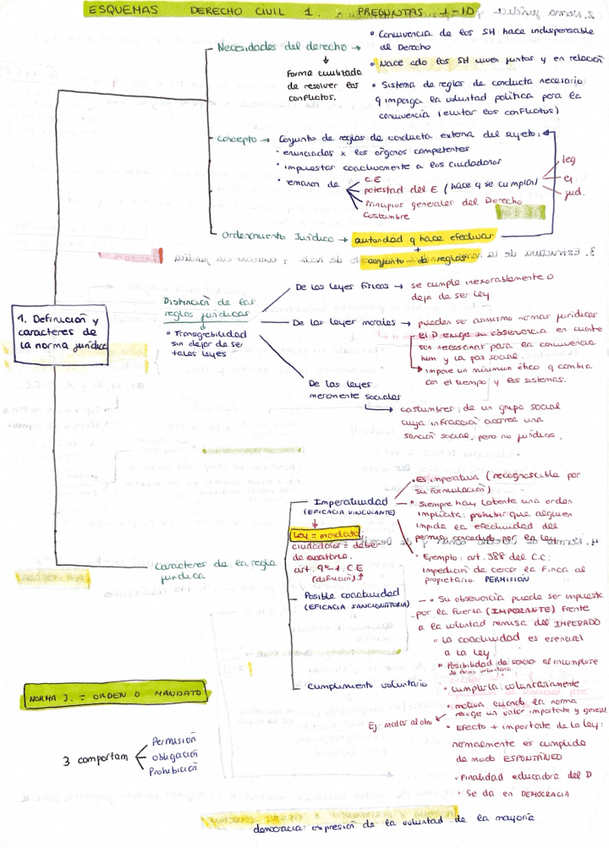 ESQUEMAS DERECHO CIVIL 1. PREGUNTAS 1-10
Necesidades del derecho →
• Convivencia de los SH hace indispensable
al Derecho
• Nace cdo los SH viven juntos y en relación
• Sistema de reglas de conducta necesario
q imponga la voluntad política para la
convivencia (evitar los conflictos)
Forma civilizada
de resolver los
conflictos.
Concepto → Conjunto de reglas de conducta externa del sujeto:
• enunciadas x los órganos competentes
• impuestas coactivamente a los ciudadanos
• emanan de
C.E
potestad del E (hace q se cumplan)
Principios generales del Derecho
Costumbre
leg
ej
jud.
Ordenamiento Jurídico → autoridad q hace efectivas
+
conjunto de reglas
1. Definición y
caracteres de
la norma jurídica
Distinción de las
reglas jurídicas
• Transgredibilidad
sin dejar de ser
tales leyes
De las leyes físicas → se cumple inexorablemente o
deja de ser ley
De las leyes morales → pueden ser asimismo normas jurídicas
el D exige su observancia en cuanto
son necesarias para la convivencia
hum y la paz social.
• impone un mínimum ético q cambia
con el tiempo y los sistemas.
De las leyes
meramente sociales
costumbres, de un grupo social
cuya infracción acarrea una
sanción social, pero no jurídica.
Caracteres de la regla
jurídica
Imperatividad
(EFICACIA VINCULANTE)
Ley = mandato
ciudadanos = deber
de acatarla.
art. 9º1. C.E
• es imperativa (recognoscible por
su formulación)
• Siempre hay latente una orden
implícita: prohibir que alguien
impida la efectividad del
permiso concedido por la ley
• Ejemplo: art. 388 del C.C:
impedición de cercar la finca al
propietario. PERMISIÓN
Posible coactividad
(EFICACIA SANCIONATORIA)
• Su observancia puede ser impuesta
por la fuerza (IMPERANTE) frente
a la voluntad remisa del IMPERADO
• la coactividad es esencial
a la ley
• Posibilidad de sanción al incumplirse
Cumplimiento voluntario
• cumplirla voluntariamente
• motiva cuando la norma
recoge un valor importante y general
Ej: matar al otro
• Efecto + importante de la ley:
normalmente es cumplida
de modo ESPONTÁNEO
• Finalidad educadora del D
• Se da en DEMOCRACIA
NORMA J. = ORDEN O MANDATO
3 comportam
Permisión
Obligación
Prohibición
democracia: expresión de la voluntad de la mayoría